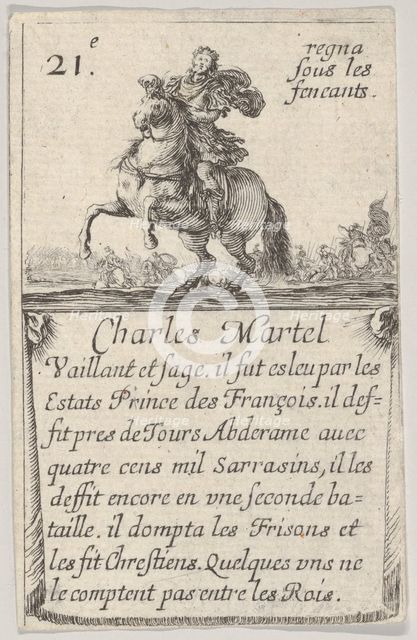 21.e
regna
sous les
feneants.
Charles Martel
Vaillant et sage, il fut esleu par les
Estats Prince des François. il def=
fit pres de Tours Abderame auec
quatre cens mil Sarrasins, il les
deffit encore en vne seconde ba=
taille. il dompta les Frisons et
les fit Chrestiens. Quelques vns ne
le comptent pas entre les Rois.
Heritage